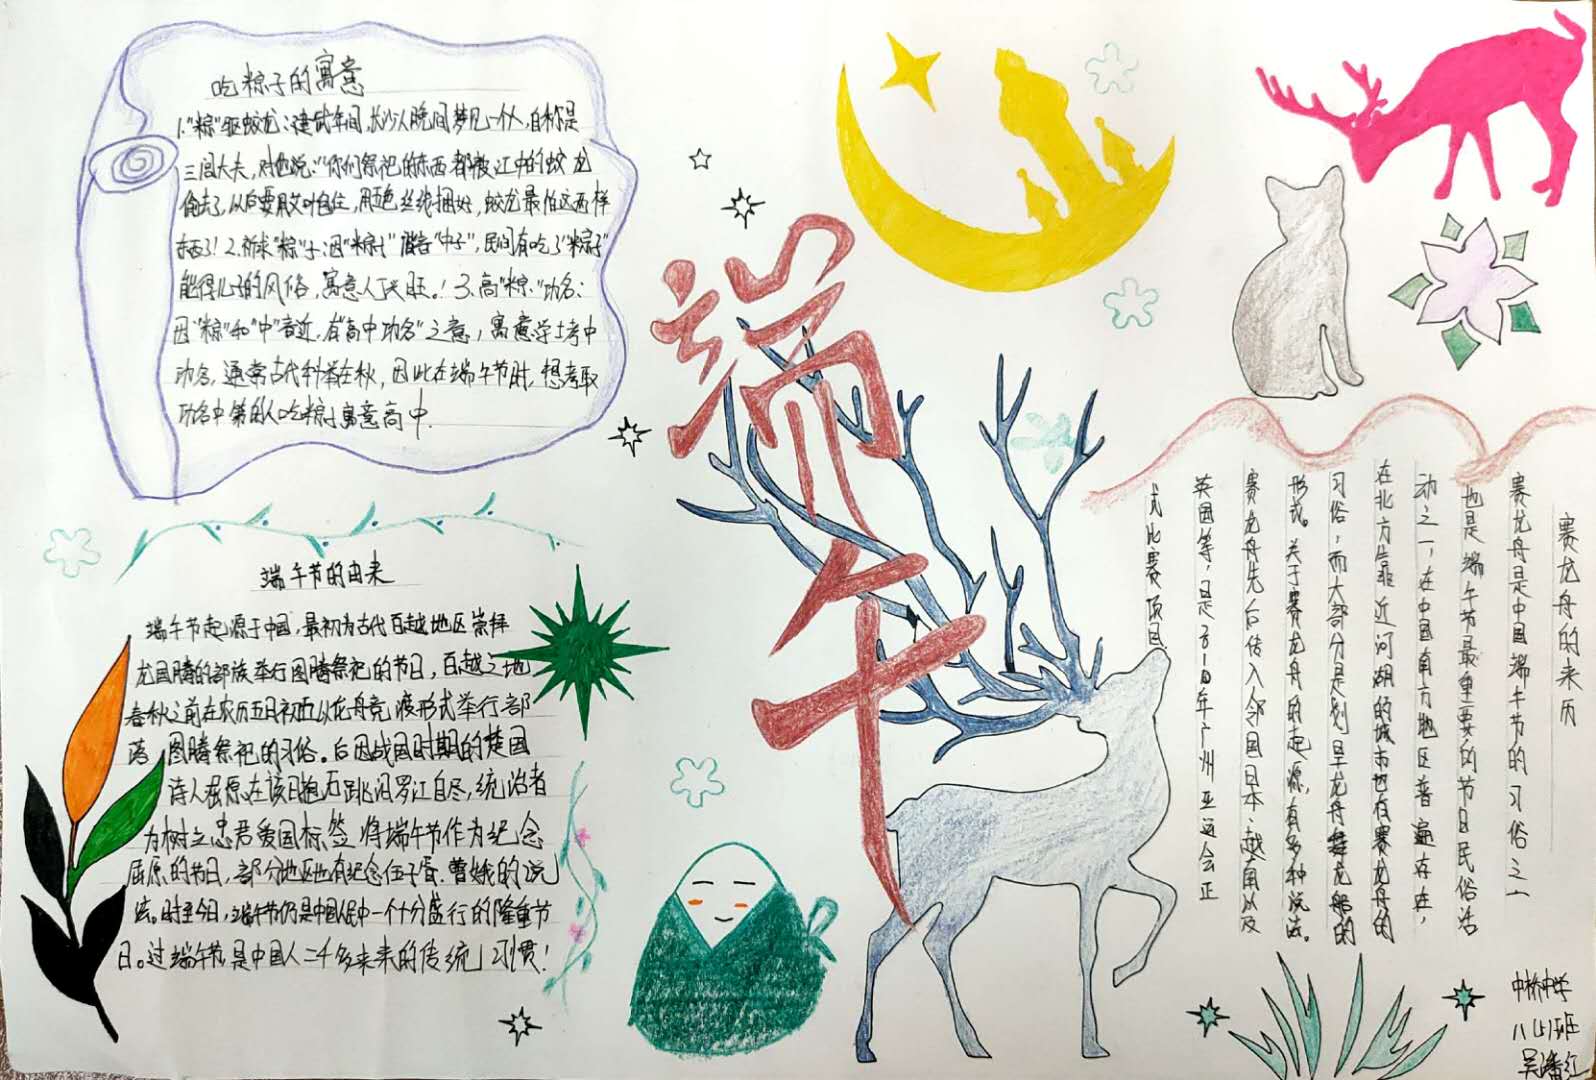 吃粽子的寓意
1."粽"驱蛟龙:建武年间,长沙人晚间梦见一个人,自称是
三闾大夫,对他说:"你们祭祀的东西都被江中的蛟龙
偷去了,以后要用艾叶包住,用五色丝线捆好,蛟龙最怕这两样
东西了!2.祈求"粽"子:因"粽子"谐音"中子",民间有吃了"粽子"
能得儿子的风俗,寓意人丁兴旺。!3.高"粽"功名:
因"粽"和"中"音近,有"高中功名"之意,寓意学士考中
功名,通常古代科举在秋,因此在端午节时,想考取
功名中第的人吃粽子寓意高中.
端午
端午节的由来
端午节起源于中国,最初为古代百越地区崇拜
龙图腾的部族举行图腾祭祀的节日,百越之地
春秋之前在农历五月初五以龙舟竞渡形式举行部
落图腾祭祀的习俗。后因战国时期的楚国
诗人屈原在该日抱石跳汨罗江自尽,统治者
为树立忠君爱国标签将端午节作为纪念
屈原的节日,部分地区也有纪念伍子胥.曹娥的说
法。时至今日,端午节仍是中国人民中一个十分盛行的隆重节
日。过端午节,是中国人二千多来来的传统习惯!
赛龙舟的来历
赛龙舟是中国端午节的习俗之一
也是端午节最重要的节日民俗活
动之一,在中国南方地区普遍存在,
在北方靠近河湖的城市也有赛龙舟的
习俗,而大部分是划旱龙舟舞龙船的
形式。关于赛龙舟的起源,有多种说法。
赛龙舟先后传入邻国日本、越南以及
英国等,是2010年广州亚运会正
式比赛项目
中桥中学
八(5)班